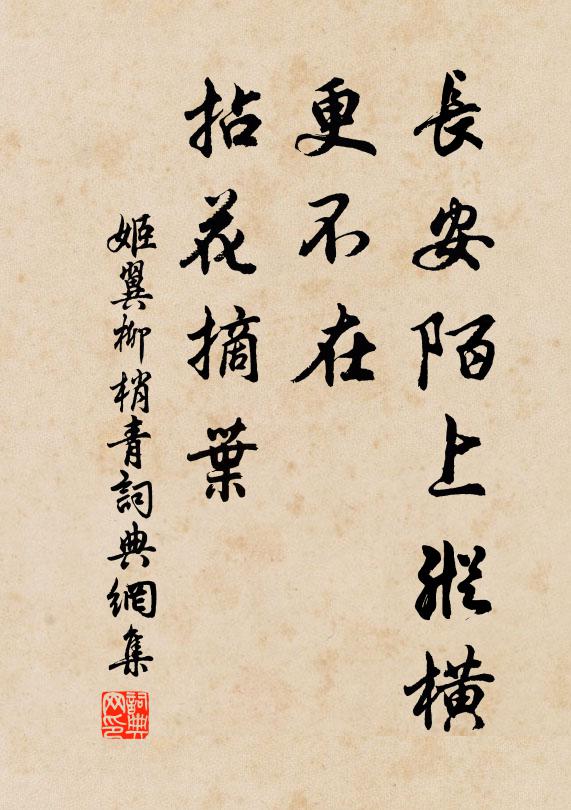 長安陌上縱橫
更不在
拈花摘葉
姬翼柳梢青詞典網集
詞典网印